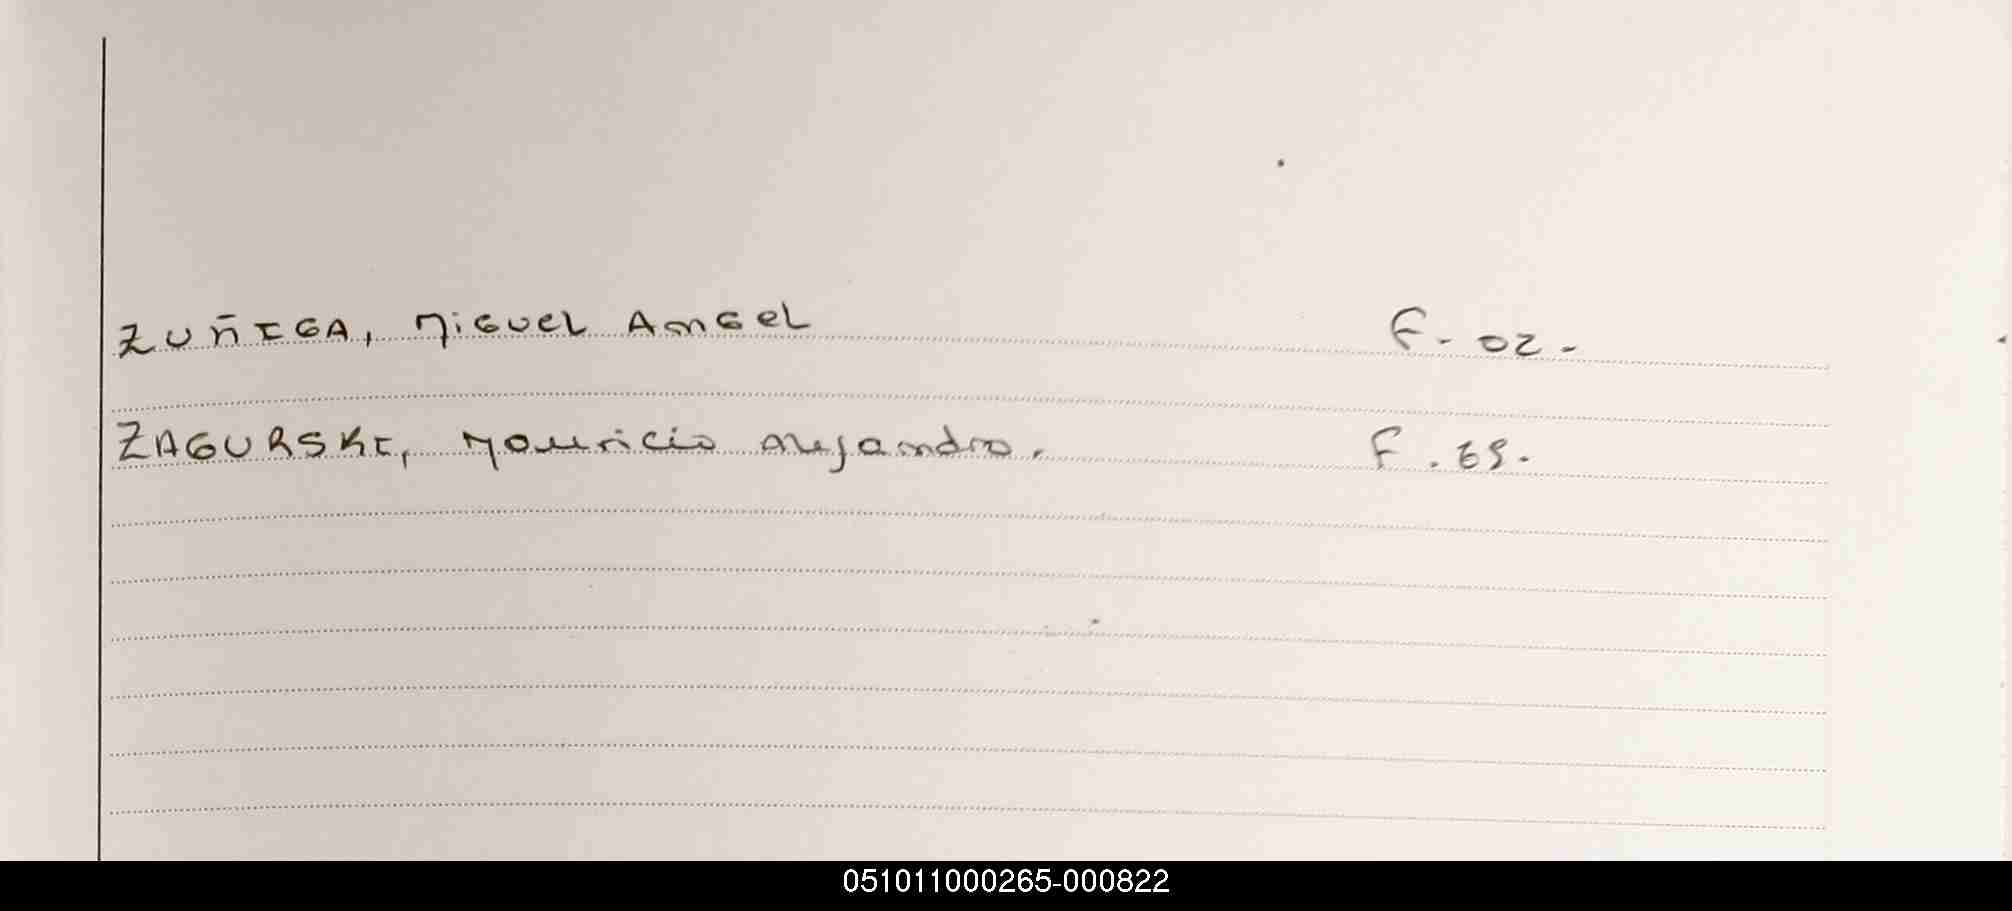 ZUÑIGA, Miguel Angel F. 02.
ZAGURSKI, Mauricio Alejandro. F. 69.
051011000265-000822